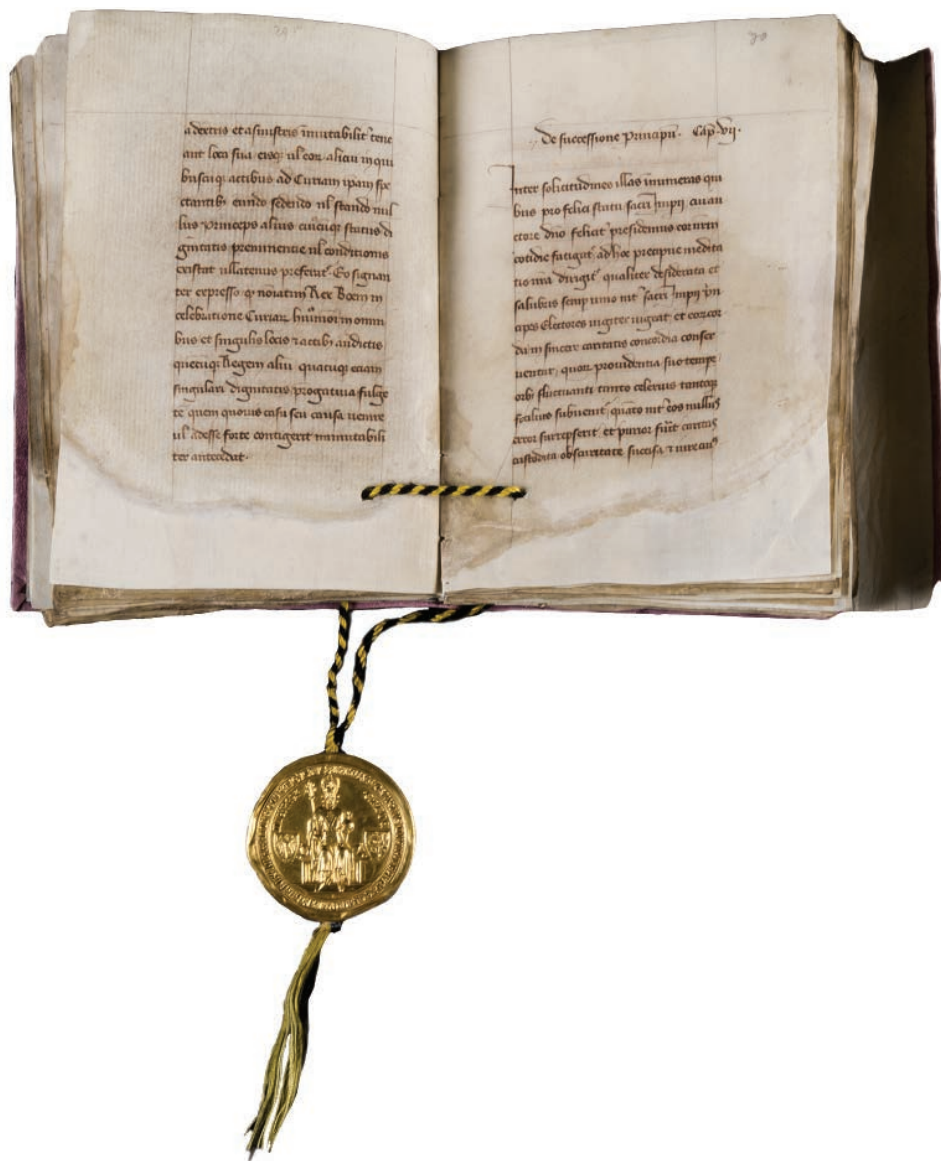 a dextris et a sinistris inmutabilit' tene
ant loca sua eisq; ul' eor alicui in qui
buscuq; actibus ad Curiam ipam spe
ctantib; eundo sedendo ul' stando nul
lus princeps alius cuiuscuq; status di
gnitatis preminentie ul' conditionis
existat ullatenus preferat'. Eo signan
ter expresso q noiatim Rex Boem in
celebratione Curiar huiusmoi in omni
bus et singulis locis et actib; andictis
quecuq; Regem aliu quacuq; eciam
singulari dignitatis progatiua fulge
te quem quouis casu seu causa uenire
ul' adesse forte contigerit inmutabili
ter antecedat.
30
De successione Principu. Cap. vii.
Inter solicitudines illas innumeras qui
bus pro felici statu sacri Impii cui au
ctore dno felicit' presidemus cor nrm
cotidie fatigat' ad hoc precipue medita
tio nra dirigit' qualiter desiderata et
salubris semp unio int' sacri Impii prin
cipes Electores iugiter uigeat et cor cor
da in sincere caritatis concordia conser
uentur, quor prouidentia suo tempe
orbi fluctuanti tanto celerius tantoq;
facilius subuenit' quato int' eos nullus
error surrepserit et purior fu'it caritas
custodita obscuritate succisa et iure cui'